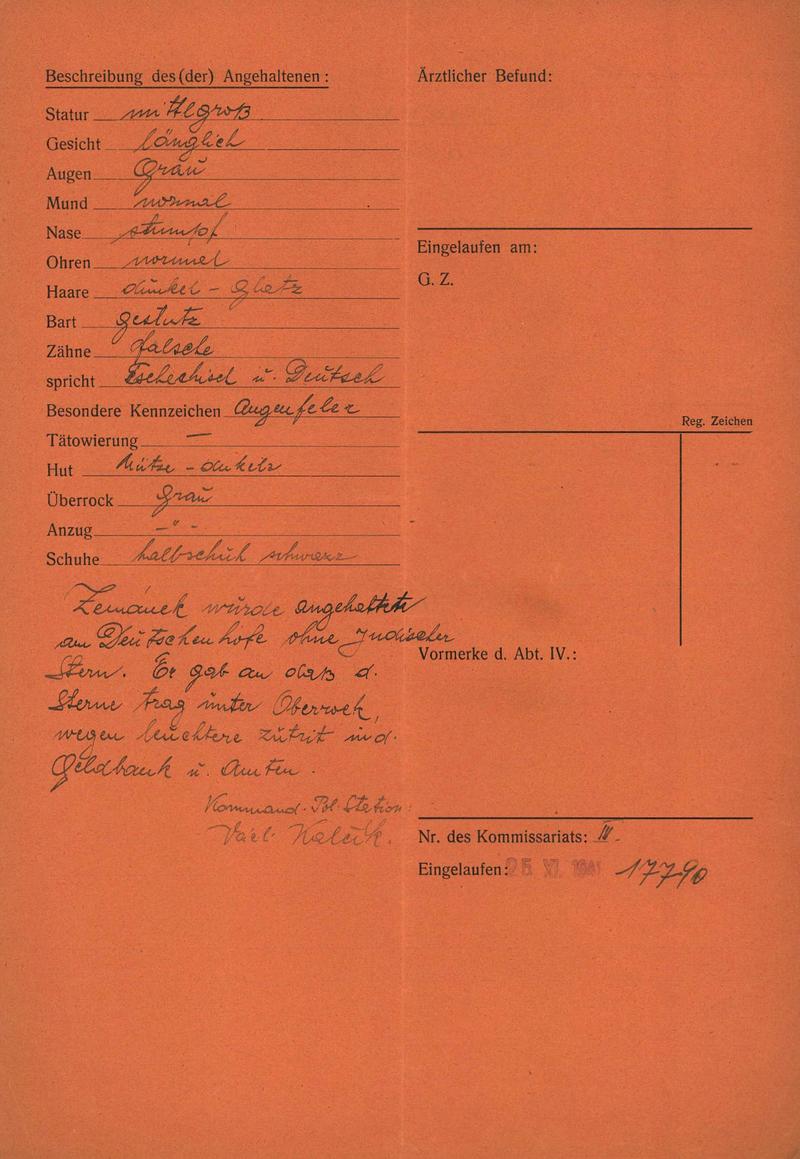 Beschreibung des(der) Angehaltenen:
Statur mittlgroß
Gesicht länglich
Augen Grau
Mund normal
Nase stumpf
Ohren normal
Haare dunkel - Glatz
Bart gestutz
Zähne falsche
spricht Tschechisch u. Deutsch
Besondere Kennzeichen Augenfeler
Tätowierung —
Hut Mütze - dukels
Überrock Grau
Anzug -"-
Schuhe halbschuh schwarz
Zemánek wurde angehaltet
am Deutschenhofe ohne Judischer
Stern. Er gab an daß d.
Sterne trag unter Oberrock,
wegen leuchtere zutrit in d.
Geldbank u. Amten.
Kommand. Pol. Station:
Ärztlicher Befund:
Eingelaufen am:
G. Z.
Reg. Zeichen
Vormerke d. Abt. IV.:
Nr. des Kommissariats: IV.
Eingelaufen: 25 XI. 1941 17790